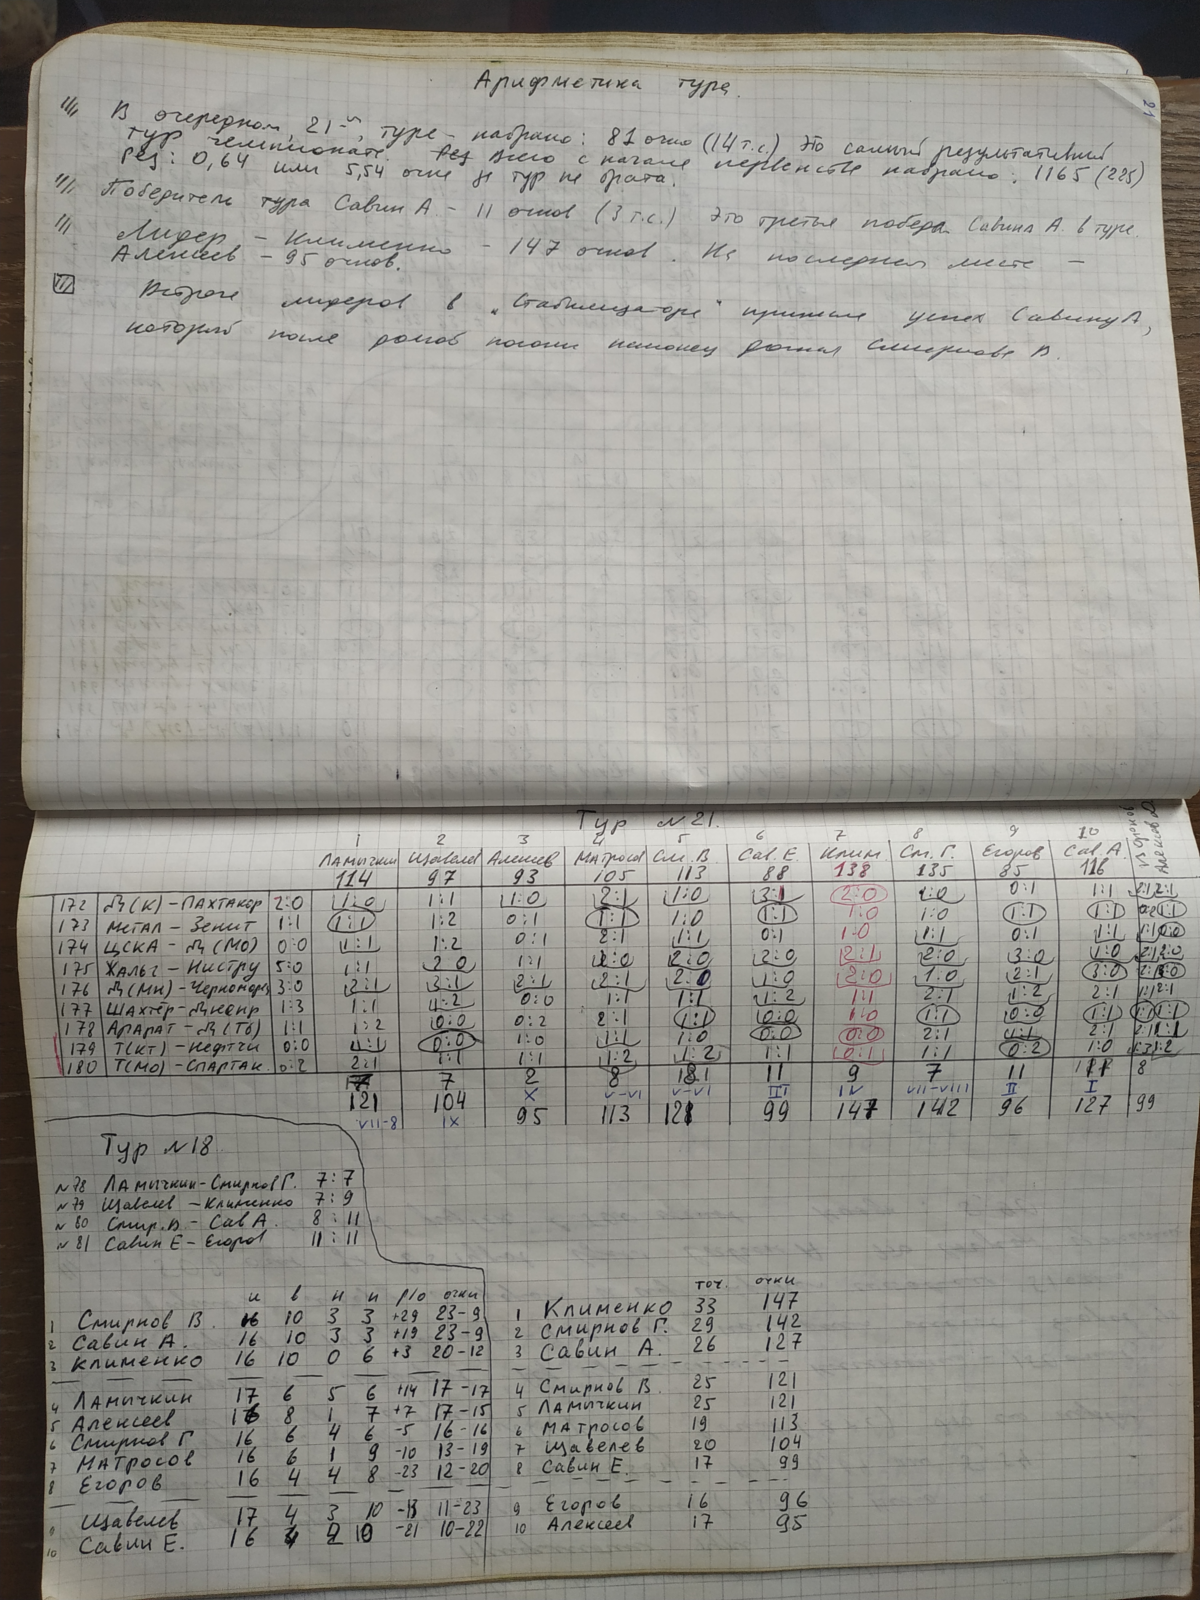 Арифметика тура.
В очередном, 21-м, туре - набрано: 81 очко (14 т.с.) Это самый результативный
тур чемпионата. Рез Всего с начала первенства набрано: 1165 (225)
Рез: 0,64 или 5,54 очка за тур на брата.
Победитель тура Савин А. - 11 очков (3 т.с.) Это третья победа Савина А. в туре.
Лидер - Клименко - 147 очков. На последнем месте -
Алексеев - 95 очков.
Встреча лидеров в "Стабилизаторе" принесла успех Савину А,
который после долгой погони наконец догнал Смирнова В.
Тур №21.
1 2 3 4 5 6 7 8 9 10
Ламычкин Щавелев Алексеев Матросов См. В. Сав. Е. Клим См. Г. Егоров Сав. А.
114 97 93 105 113 88 138 135 85 116
172 Д(К) - Пахтакор 2:0 1:0 1:1 1:0 2:1 1:0 3:1 2:0 1:0 0:1 1:1
173 Метал - Зенит 1:1 1:1 1:2 0:1 1:1 1:0 1:1 1:0 1:0 1:1 1:1
174 ЦСКА - Д(Мо) 0:0 1:1 1:2 0:1 2:1 1:1 0:1 1:0 1:1 0:1 1:1
175 Жальг - Нистру 5:0 1:1 2:0 1:1 2:0 2:0 2:0 2:1 2:0 3:0 1:0
176 Д(Мн) - Черномор 3:0 2:1 3:1 2:1 2:1 2:0 1:0 2:0 1:0 2:1 3:0
177 Шахтёр - Днепр 1:3 1:1 4:2 0:0 1:1 1:1 1:2 1:1 2:1 1:2 2:1
178 Арарат - Д(Тб) 1:1 1:2 0:0 0:2 2:1 1:1 0:0 1:0 1:1 0:0 1:1
179 Т(Кт) - Нефтчи 0:0 1:1 0:0 1:0 1:1 1:0 0:0 0:0 2:1 1:1 2:1
180 Т(Мо) - Спартак 0:2 2:1 1:1 1:1 1:2 1:2 1:1 0:1 1:1 0:2 1:0
7 7 2 8 8 11 9 7 11 11 8
X V-VI V-VI III IV VII-VIII II I
121 104 95 113 121 99 147 142 96 127 99
VII-8 IX
Тур №18
№78 Ламычкин - Смирнов Г. 7:7
№79 Щавелев - Клименко 7:9
№80 Смир. В - Сав А. 8:11
№81 Савин Е - Егоров 11:11
и в н п р/о очки
1 Смирнов В. 16 10 3 3 +29 23-9
2 Савин А. 16 10 3 3 +19 23-9
3 Клименко 16 10 0 6 +3 20-12
4 Ламычкин 17 6 5 6 +14 17-17
5 Алексеев 16 8 1 7 +7 17-15
6 Смирнов Г 16 6 4 6 -5 16-16
7 Матросов 16 6 1 9 -10 13-19
8 Егоров 16 4 4 8 -23 12-20
9 Щавелев 17 4 3 10 -13 11-23
10 Савин Е. 16 4 2 10 -21 10-22
точ. очки
1 Клименко 33 147
2 Смирнов Г. 29 142
3 Савин А. 26 127
4 Смирнов В. 25 121
5 Ламычкин 25 121
6 Матросов 19 113
7 Щавелев 20 104
8 Савин Е. 17 99
9 Егоров 16 96
10 Алексеев 17 95